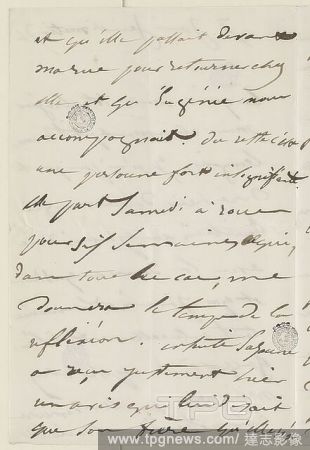 et qu'elle passait devant
ma rue pour retourner chez
elle et qu'Eugénie nous
accompagnait. Du reste c'est
une personne fort insignifiante
Elle part Samedi à
pour six Semaines,
dans tous les cas, me
donnera le temps de la
réflexion. ensuite
a reçu justement hier
un avis qui lui disait
que son frère
TPG
www.tpgnews.com / 達志影像